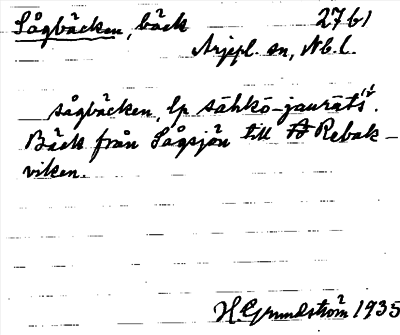 Sågbäcken, bäck 27 b 1
Arjepl. sn, Nb. l.
sågbäcken, lp sähkō-jaurāts.
Bäck från Sågsjön till Rebak-
viken.
H. Grundström 1935